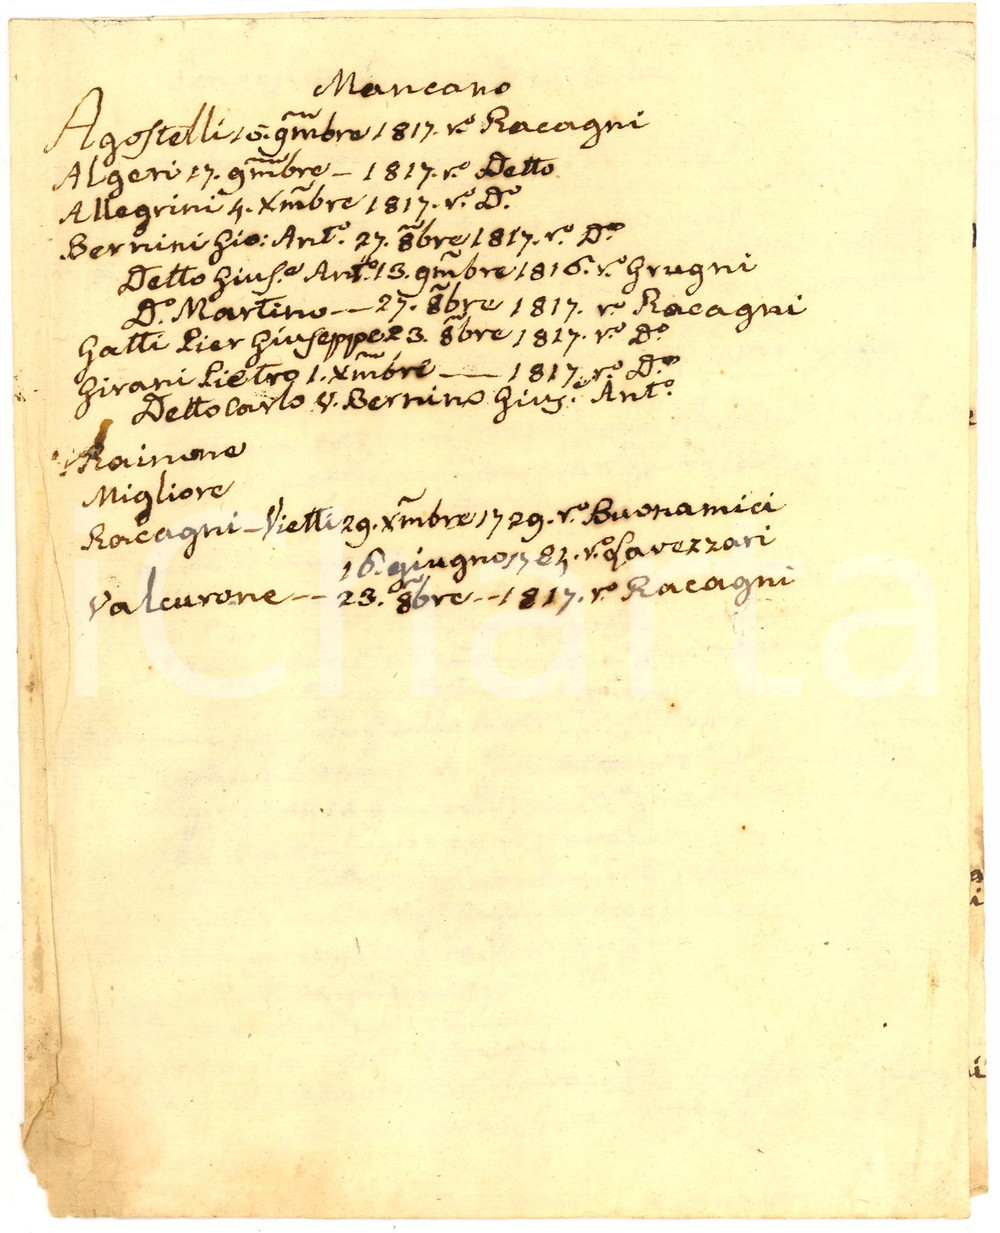 Mancano
Agostelli 15. 9mbre 1817. r.o Racagni
Algeri 17. 9mbre — 1817. r.o Detto
Allegrini 4. Xmbre 1817. r.o D.o
Bernini Gio: Ant.o 27. 8bre 1817. r.o D.o
Detto Gius.e Ant.o 13. 9mbre 1816. r.o Grugni
D.o Martino — 27. 8bre 1817. r.o Racagni
Gatti Pier Giuseppe 23. 8bre 1817. r.o D.o
Girani Pietro 1. Xmbre — 1817. r.o D.o
Detto Carlo V. Bernino Gius.e Ant.o
Rainone
Migliore
Racagni – Vietti 29. Xmbre 1729. r.o Buonamici
16. giugno 1784. r.o Gavezzari
Valcurone — 23. 8bre — 1817. r.o Racagni
iCharta